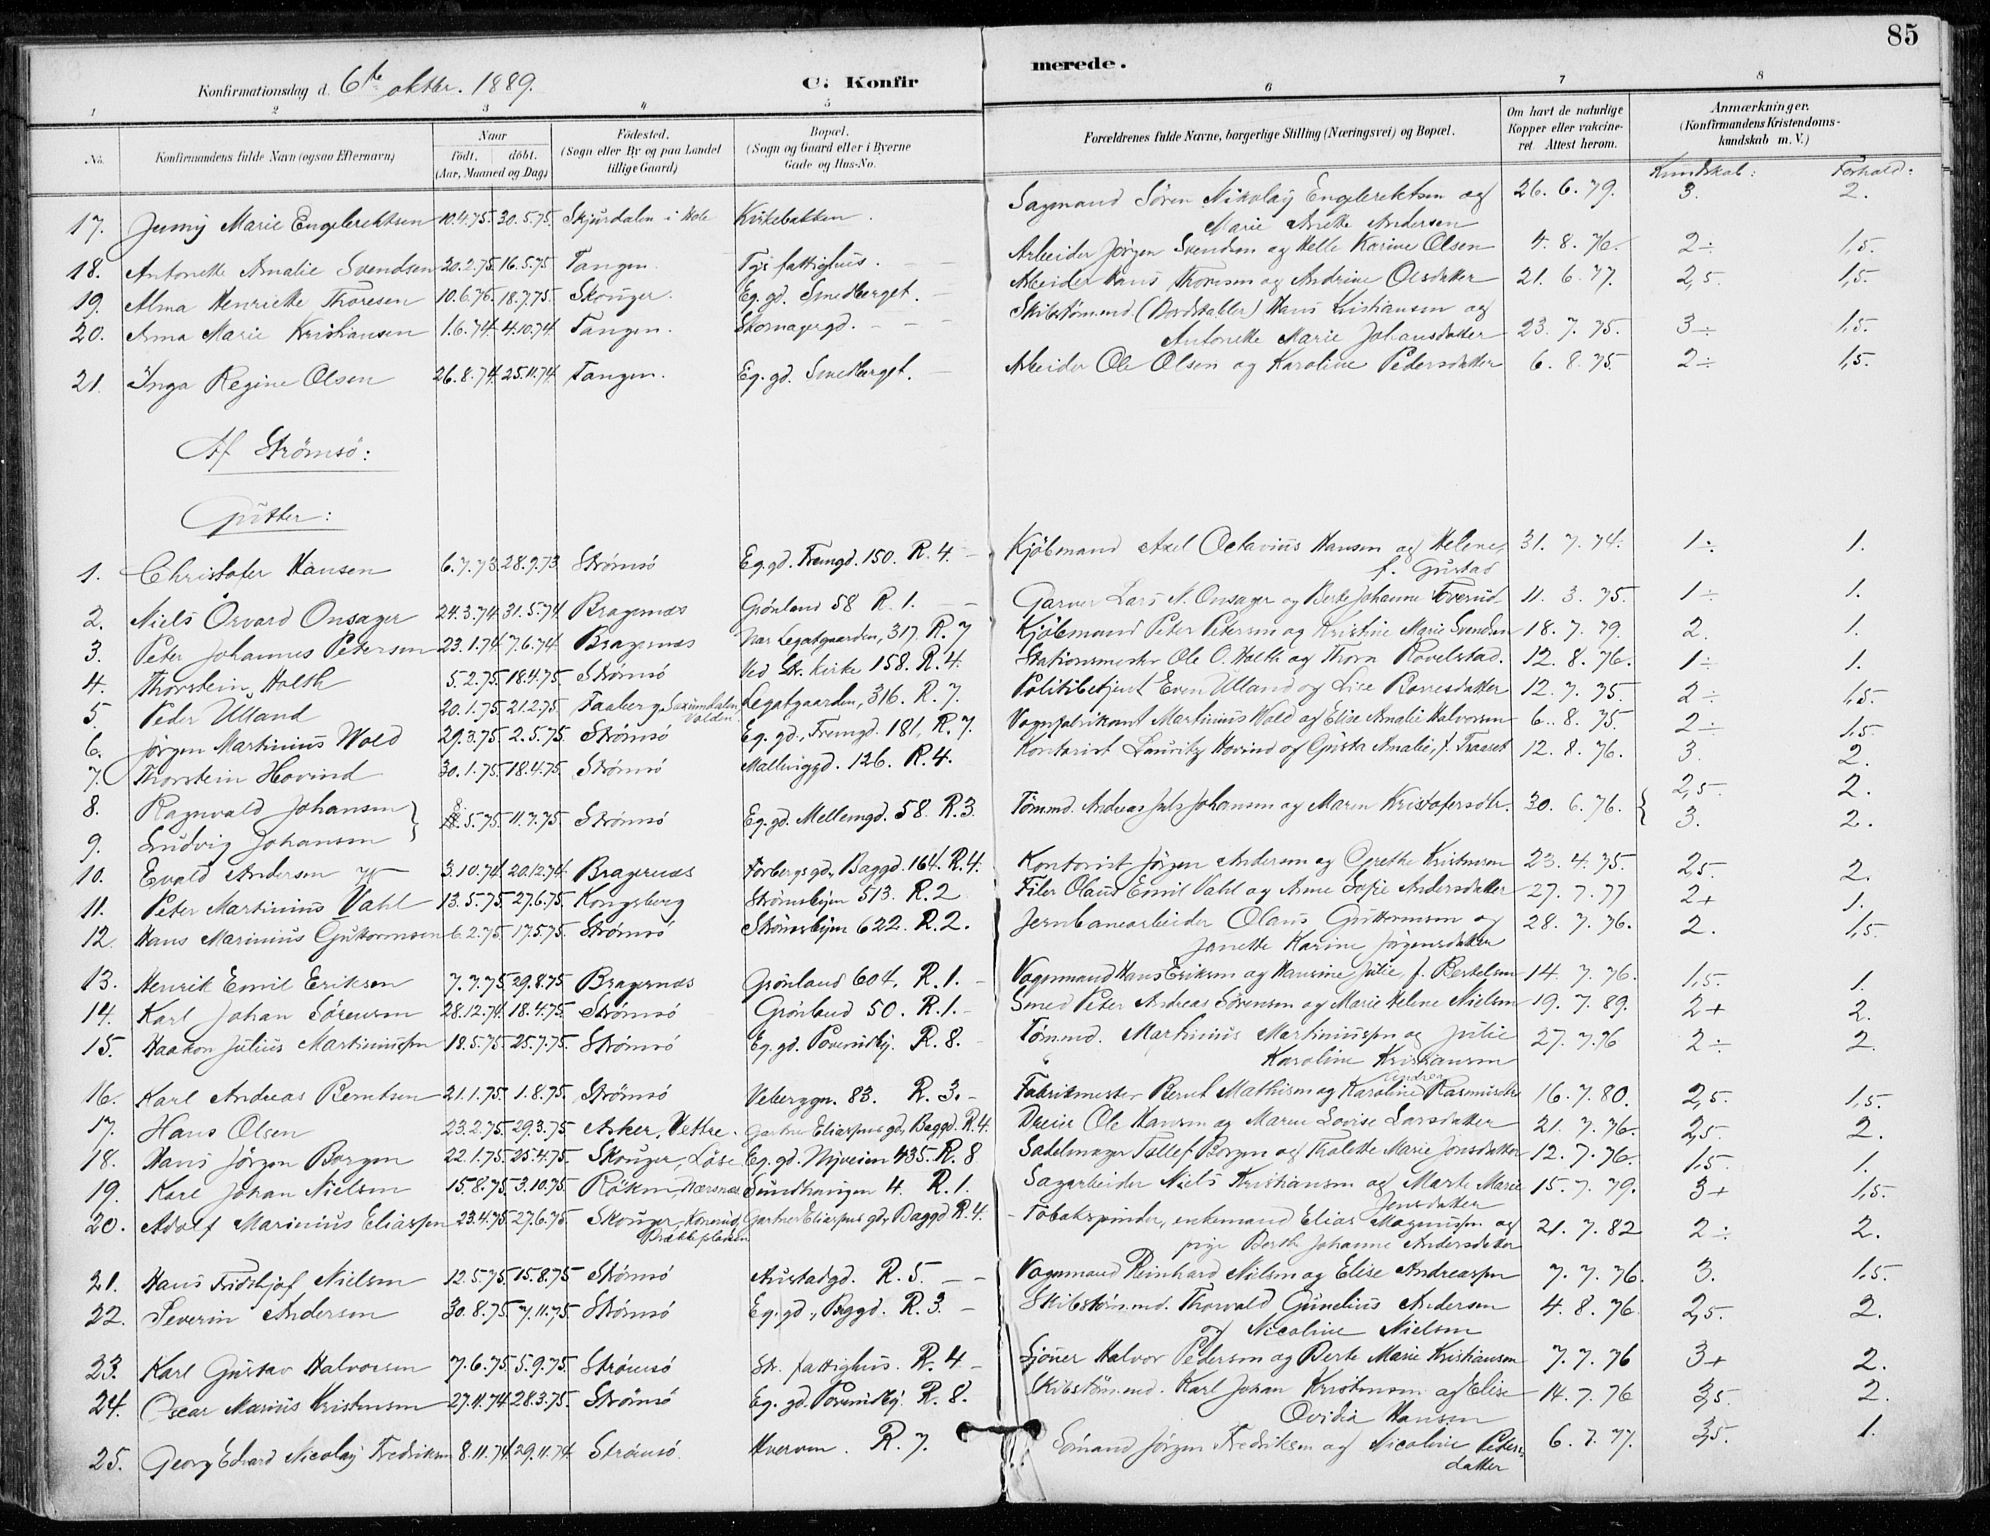 85
Konfirmationsdag d. 6te oktbr. 1889. C. Konfirmerede.
1 2 3 4 5 6 7 8
No. Konfirmandens fulde Navn (ogsaa Efternavn) Naar født. døbt. (Aar, Maaned og Dag) Fødested. (Sogn eller By og paa Landet tillige Gaard) Bopæl. (Sogn og Gaard eller i Byerne Gade og Hus-No. Forældrenes fulde Navne, borgerlige Stilling (Næringsvei) og Bopæl. Om havt de naturlige Kopper eller vakcineret. Attest herom. Anmærkninger. (Konfirmandens Kristendomskundskab m. V.)
Kundskab: Forhold:
17. Jenny Marie Engebrektsen 10.4.75. 30.5.75. Skjærdalen i Hole Kirkebakken. Sagmand Søren Nikolay Engebrektsen og Marie Anette Andersen 26. 6. 79. 3. 2.
18. Antonette Amalie Svendsen 20.2.75. 16.5.75 Tangen. Tgs fattighus. Arbeider Jørgen Svendsen og Helle Karine Olsen 4. 8. 76. 2÷ 1,5.
19. Alma Henriette Thoresen 10.6.75. 18.7.75. Skouger. Eg. gd. Smedberget. Arbeider Hans Thoresen og Andrine Olsdatter 21. 6. 77. 2,5. 1,5.
20. Anna Marie Kristiansen 1.6.74. 4.10.74. Tangen. Skomagergd. Skibstømmd (Bordstabler) Hans Kristiansen og Antonette Marie Johansdatter 23. 7. 75. 3÷ 1,5.
21. Inga Regine Olsen 26.8.74. 25.11.74 Tangen. Eg. gd. Smedberget. Arbeider Ole Olsen og Karoline Pedersdatter 6. 8. 75. 2÷ 1,5.
Af Strømsø:
Gutter:
1. Christofer Hansen 6.7.73. 28.9.73. Strømsø Eg. gd. Tremgd. 150. R. 4. Kjøbmand Axel Octavius Hansen og Helene, f. Gustad 31. 7. 74. 1÷ 1.
2. Niels Orvard Onsager 24.3.74. 31.5.74. Bragernæs Grønland 58 R. 1. Garver Lars N. Onsager og Berte Johanne Toverud 11. 3. 75. 1÷ 1.
3. Peter Johannes Petersen 23.1.74. 7.6.74. Bragernæs Nær Legatgaarden, 317. R. 7 Kjøbmand Peter Petersen og Kristine Marie Svendsen 18. 7. 79. 2. 1.
4. Thorstein Holth 5.2.75. 18.4.75 Strømsø Ved Str. kirke 158. R. 4. Stationsmester Ole O. Holth og Thora Rovelstad. 12. 8. 76. 1÷ 1.
5. Peder Ulland 20.1.75. 21.2.75. Faaberg Legatgaarden, 316. R. 7. Politibetjent Even Ulland og Lise Borresdatter 12. 7. 75. 2÷ 1,5.
6. Jørgen Martinius Wold 29.3.75. 2.5.75. Strømsø Eg. gd., Tremgd. 181, R. 7. Vognfabrikant Martinius Wold og Elise Amalie Halvorsen 6. 8. 75. 2÷ 1.5.
7. Thorstein Hovind 30.1.75. 18.4.75. Strømsø Mallinggd. 126. R. 4. Kontorist Lauritz Hovind og Gusta Amalie, f. Traaset 12. 8. 76. 3. 2.
8. Ragnvald Johansen
9. Ludvig Johansen 8.5.75. 11.7.75. Strømsø Eg. gd. Mellemgd. 58. R. 3. Tømmd. Andreas Juls Johansen og Maren Kristofersdtr. 30. 6. 76. 2,5. 2.
3. 2.
10. Evald Andersen 3.10.74. 20.12.74. Bragernæs Forbergs gd., Baggd. 164. R. 4. Kontorist Jørgen Andersen og Grethe Kristensen 23. 4. 75. 2,5. 2.
11. Peter Martinius Vahl 13.5.75. 27.6.75. Kongsberg Strømsbyen 513. R. 2. Filer Olaus Emil Vahl og Anne Sofie Andersdatter 27. 7. 77 2+ 1.
12. Hans Marinius Guttormsen 6.2.75. 17.5.75. Strømsø Strømsbyen 622. R. 2. Jernbanearbeider Olaus Guttormsen og Janette Karine Jørgensdatter 28. 7. 76. 2. 1,5.
13. Henrik Emil Eriksen 7.7.75. 29.8.75. Bragernæs Grønland 604. R. 1. Vognmand Hans Eriksen og Hansine Julie, f. Bertelsen 14. 7. 76. 1,5. 1.
14. Karl Johan Sørensen 28.12.74. 18.4.75. Strømsø Grønland 50. R. 1. Smed Peter Andreas Sørensen og Marie Helene Nielsen 19. 7. 89. 2+ 2.
15. Haakon Julius Martiniussen 18.5.75. 25.7.75. Strømsø Eg. gd. Povensby. R. 8. Tømmd. Martinius Martiniussen og Julie Karoline Kristiansen 27. 7.76 2÷ 2.
16. Karl Andreas Berntsen 21.1.75. 1.8.75. Strømsø Veberggn. 83. R. 3. Fabrikmester Bernt Mathisen og Karoline Andrea Rasmusdtr 16. 7. 80. 2,5. 1,5.
17. Hans Olsen 23.2.75. 29.3.75 Asker, Vettre. Gartner Eliassens gd, Baggd. R. 4. Dreier Ole Hansen og Maren Lovise Larsdatter 21. 7. 76. 2,5. 2.
18. Hans Jørgen Borgen 22.1.75. 25.4.75. Skouger, Eg. gd. Nyveien 435. R. 8 Sadelmager Tollef Borgen og Thalette Marie Jonsdatter 12. 7. 76. 1.5. 1.
19. Karl Johan Nielsen 15.8.75. 3.10.75. Røken, Nærsnæs. Sundhaugen 4. R. 1. Sagarbeider Niels Kristiansen og Marte Marie Jonsdatter 15. 7. 79. 3+ 1,5.
20. Adolf Marinius Eliassen 23.4.75. 27.6.75. Skouger, Konerud, Gartner Eliassens gd, Baggd R. 4. Tobakspinder, enkemand Elias Magnussen og pige Berth Johanne Andersdatter 21. 7. 82 2÷ 2.
21. Hans Fridthjof Nielsen 12.5.75. 15.8.75 Strømsø Austadgd. R. 5. Vognmand Reinhard Nielsen og Elise Andreassen 7. 7. 76. 3. 1,5.
22. Severin Andersen 30.8.75. 7.11.75. Strømsø Eg. gd., Baggd. R. 3. Skibstømmd. Thorvald Gunelius Andersen og Nicoline Nielsen 4. 8. 76. 2,5. 2.
23. Karl Gustav Halvorsen 7.6.75. 5.9.75. Strømsø Str. fattighus. R. 4 Sjøner Halvor Pedersen og Berte Marie Kristiansen 7. 7. 76 3+ 2.
24. Oscar Marius Kristensen 27.11.74 28.3.75. Strømsø Eg. gd. Povensby. R. 8. Skibstømmd. Karl Johan Kristensen og Elise Ovidia Hansen 14. 7. 76 3,5. 2.
25. Georg Edvard Nicolay Fredriksen 8.11.74. 29.11.74. Strømsø. Hverven. R. 7. Sømand Jørgen Fredriksen og Nicoline Petersdatter 6. 7. 77. 3,5. 1.